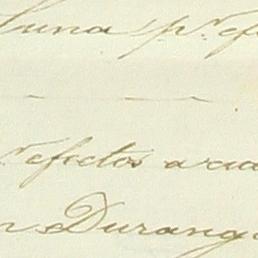 Luna pr. ef
r. efectos a cu
n Durang